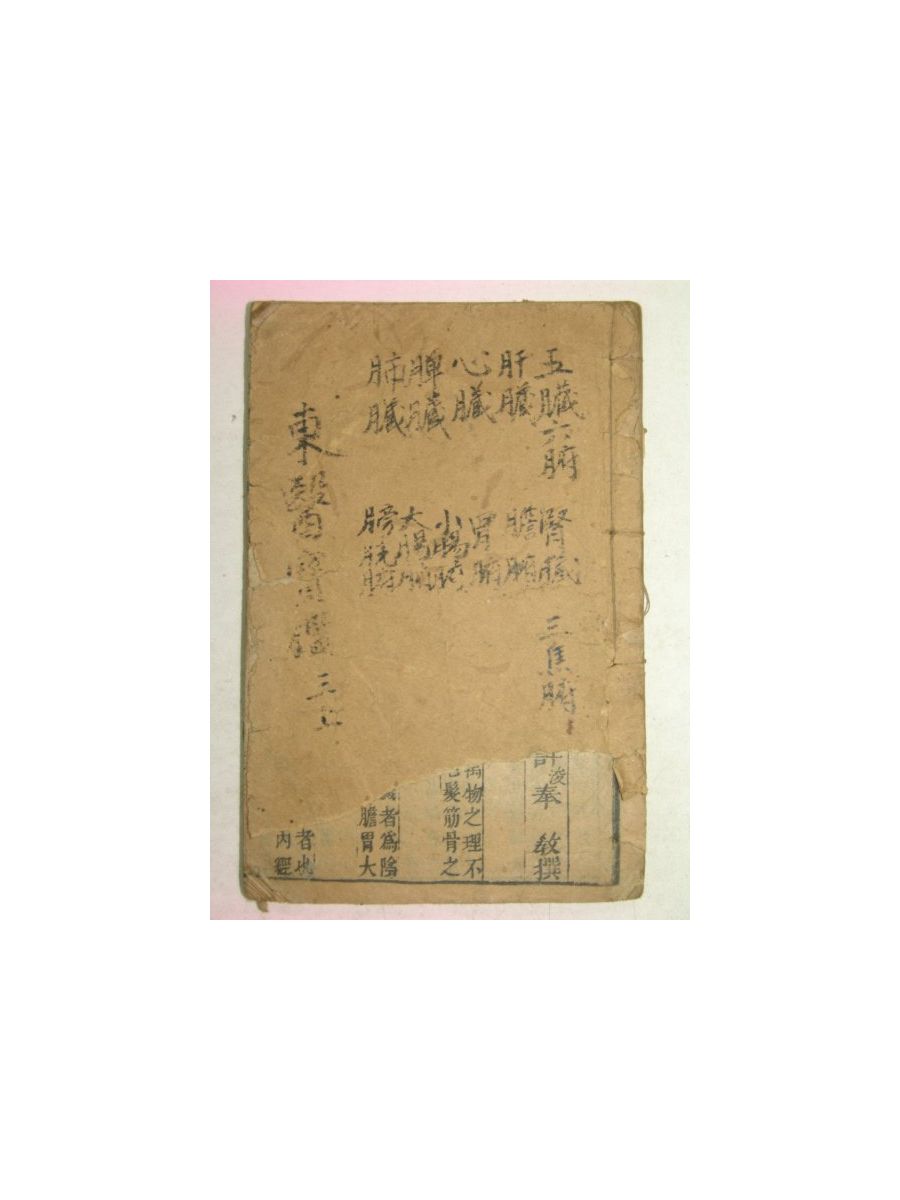 五臟六腑
肝臟
心臟
脾臟
肺臟
腎臟
膽腑
胃腑
小腸腑
大腸腑
膀胱腑
三焦腑
東醫寶鑑 三
浚奉 敎撰
物之理不
髮筋骨之
者爲陰
膽胃大
者也
內經